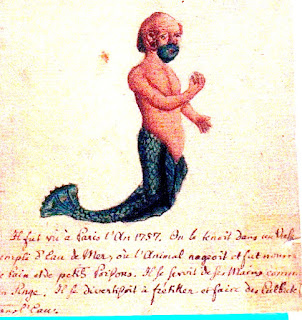 Il fut vû à Paris l'An 1757. On le tenoit dans un Vase
rempli d'Eau de Mer, où l'Animal nageoit et fut nourri
de Pain et de petits Poissons. Il se servoit de ses Mains comme
un Singe. Il se divertissoit à frétiller et faire des Culbute
dans l'Eau.